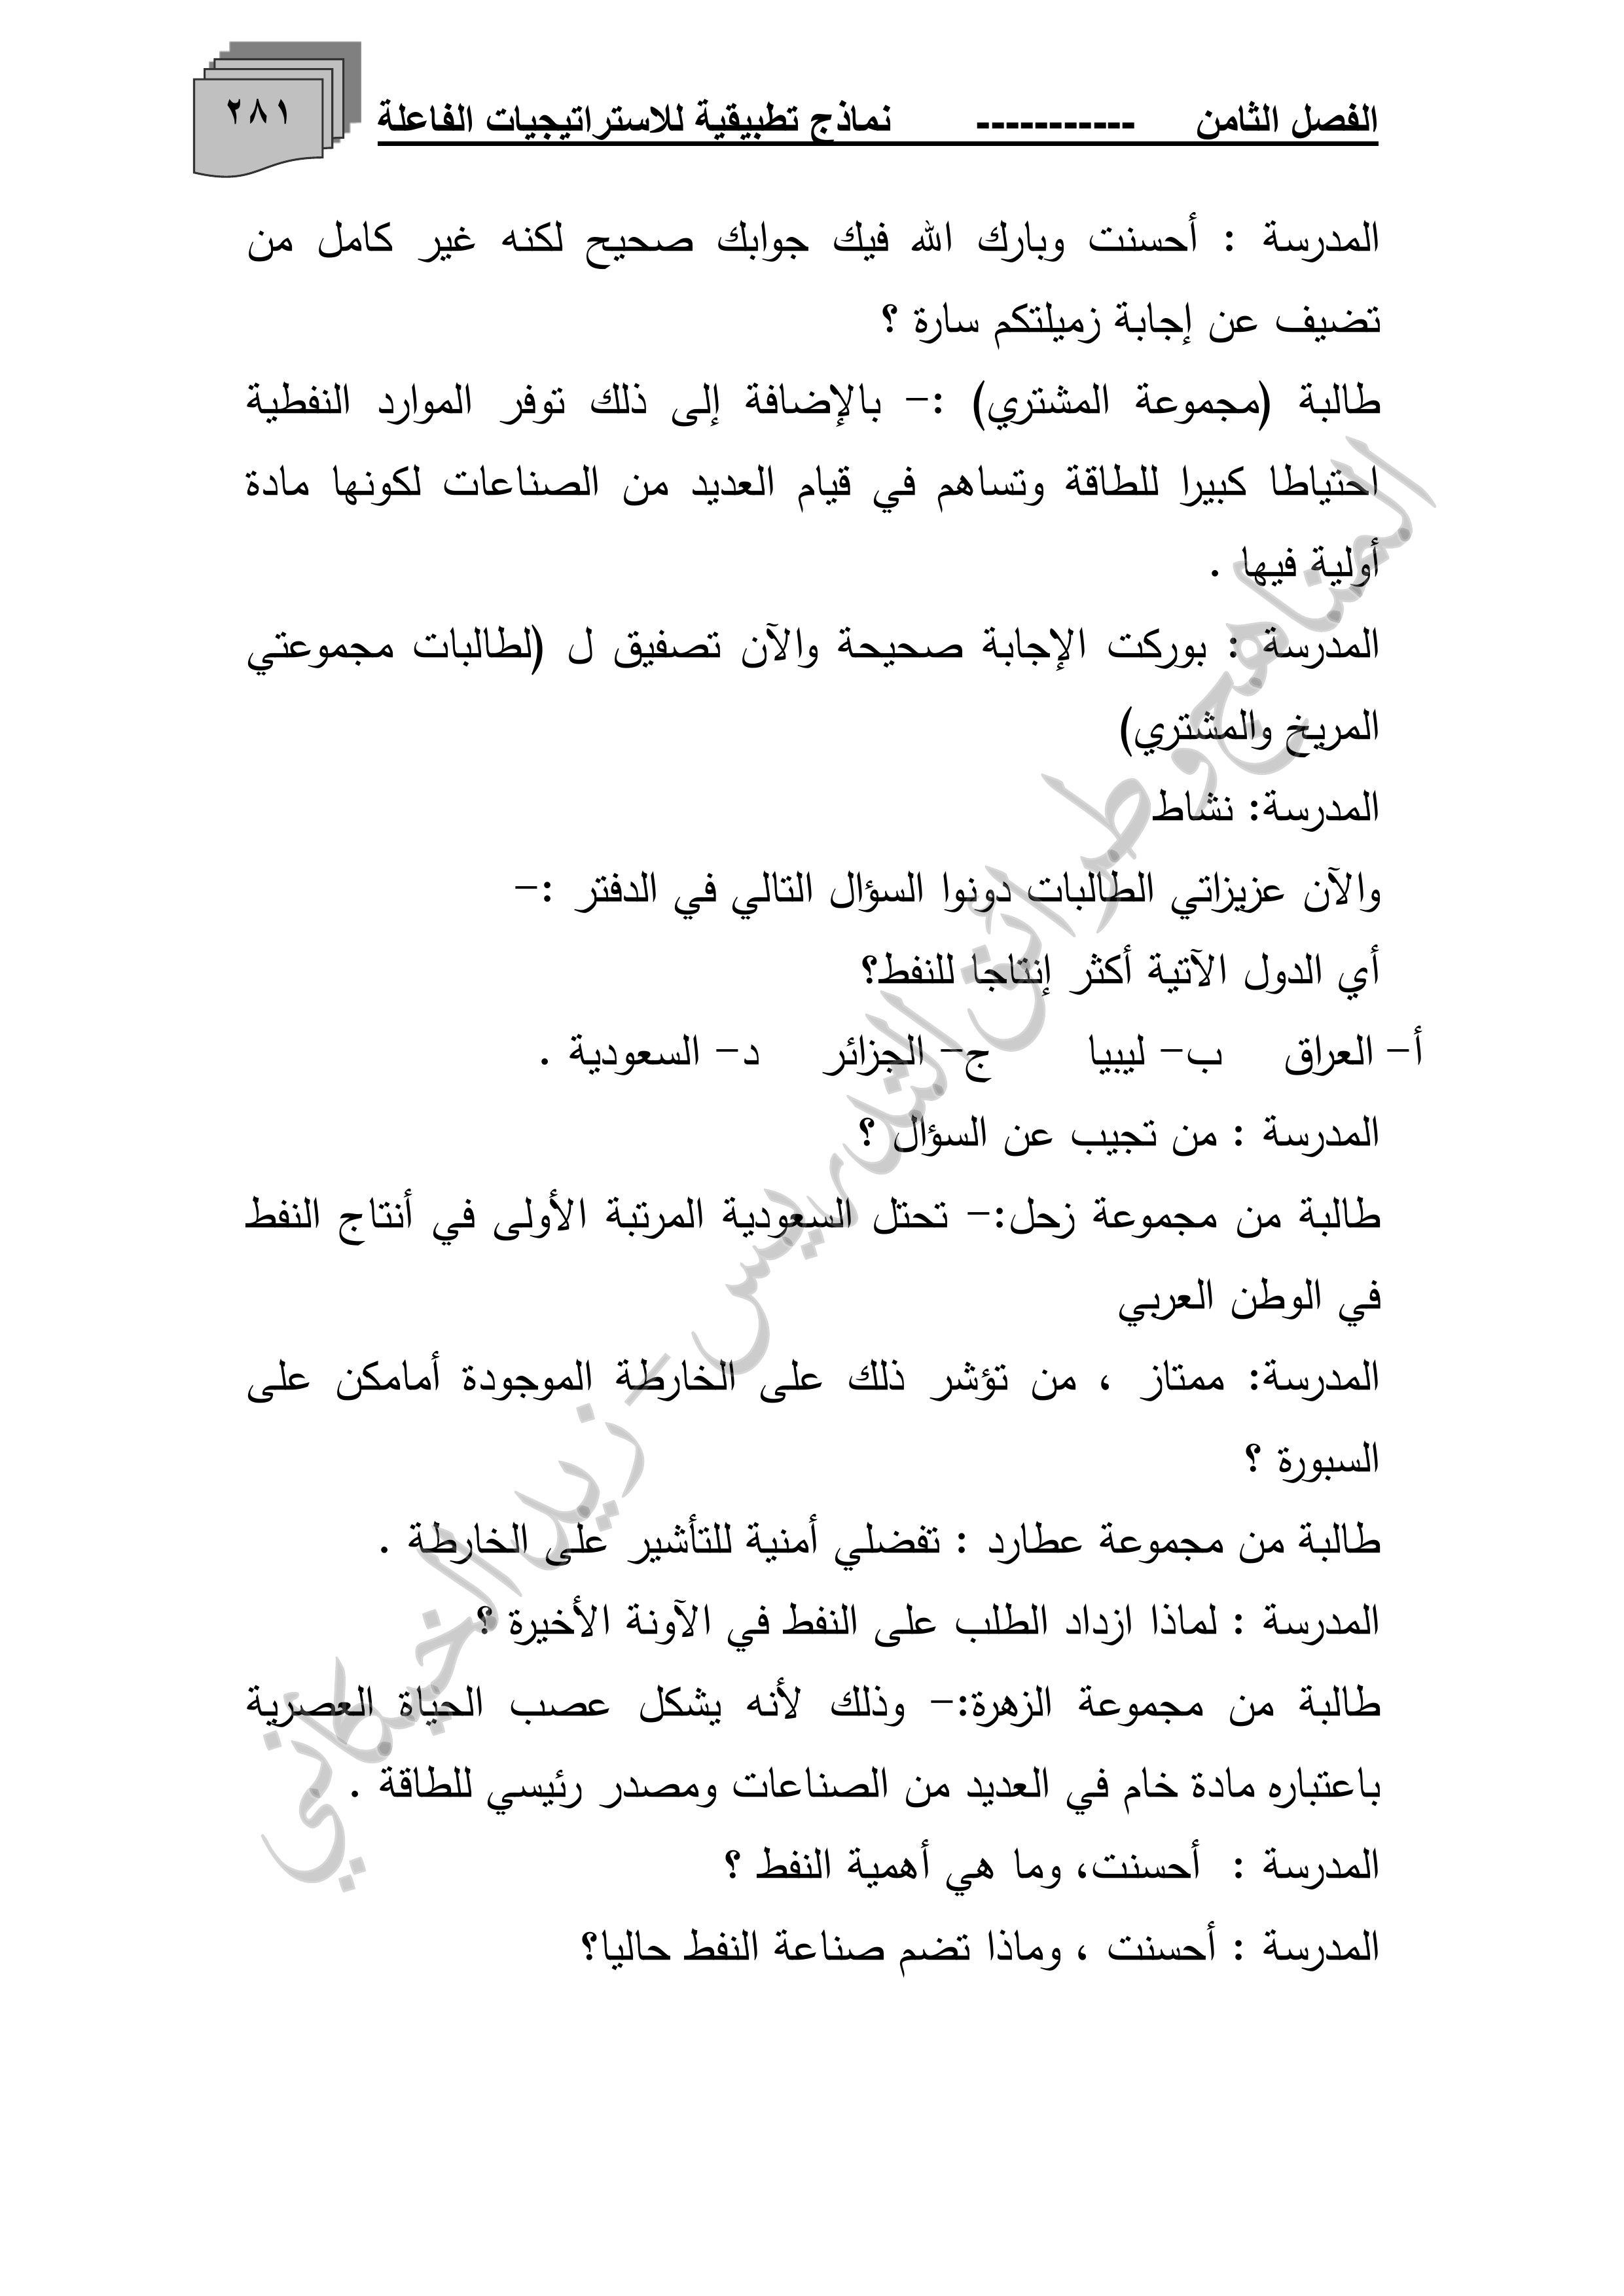 الفصل الثامن ----------- نماذج تطبيقية للاستراتيجيات الفاعلة
٢٨١
المدرسة : أحسنت وبارك الله فيك جوابك صحيح لكنه غير كامل من
تضيف عن إجابة زميلتكم سارة ؟
طالبة (مجموعة المشتري) :- بالإضافة إلى ذلك توفر الموارد النفطية
احتياطا كبيرا للطاقة وتساهم في قيام العديد من الصناعات لكونها مادة
أولية فيها .
المدرسة : بوركت الإجابة صحيحة والآن تصفيق ل (لطالبات مجموعتي
المريخ والمشتري)
المدرسة: نشاط
والآن عزيزاتي الطالبات دونوا السؤال التالي في الدفتر :-
أي الدول الآتية أكثر إنتاجا للنفط؟
أ- العراق ب- ليبيا ج- الجزائر د- السعودية .
المدرسة : من تجيب عن السؤال ؟
طالبة من مجموعة زحل:- تحتل السعودية المرتبة الأولى في أنتاج النفط
في الوطن العربي
المدرسة: ممتاز ، من تؤشر ذلك على الخارطة الموجودة أمامكن على
السبورة ؟
طالبة من مجموعة عطارد : تفضلي أمنية للتأشير على الخارطة .
المدرسة : لماذا ازداد الطلب على النفط في الآونة الأخيرة ؟
طالبة من مجموعة الزهرة:- وذلك لأنه يشكل عصب الحياة العصرية
باعتباره مادة خام في العديد من الصناعات ومصدر رئيسي للطاقة .
المدرسة : أحسنت، وما هي أهمية النفط ؟
المدرسة : أحسنت ، وماذا تضم صناعة النفط حاليا؟
المناهج وطرائق التدريس - زيد الخيكاني